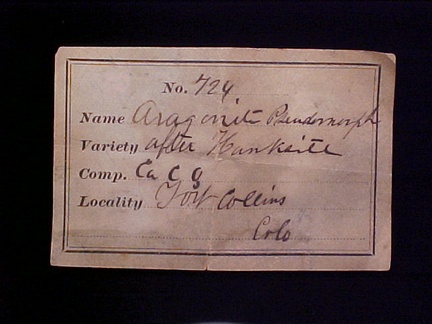 No. 724
Name Aragonite Pseudomorph
Variety after Hanksite
Comp. Ca C O
Locality Fort Collins
Colo